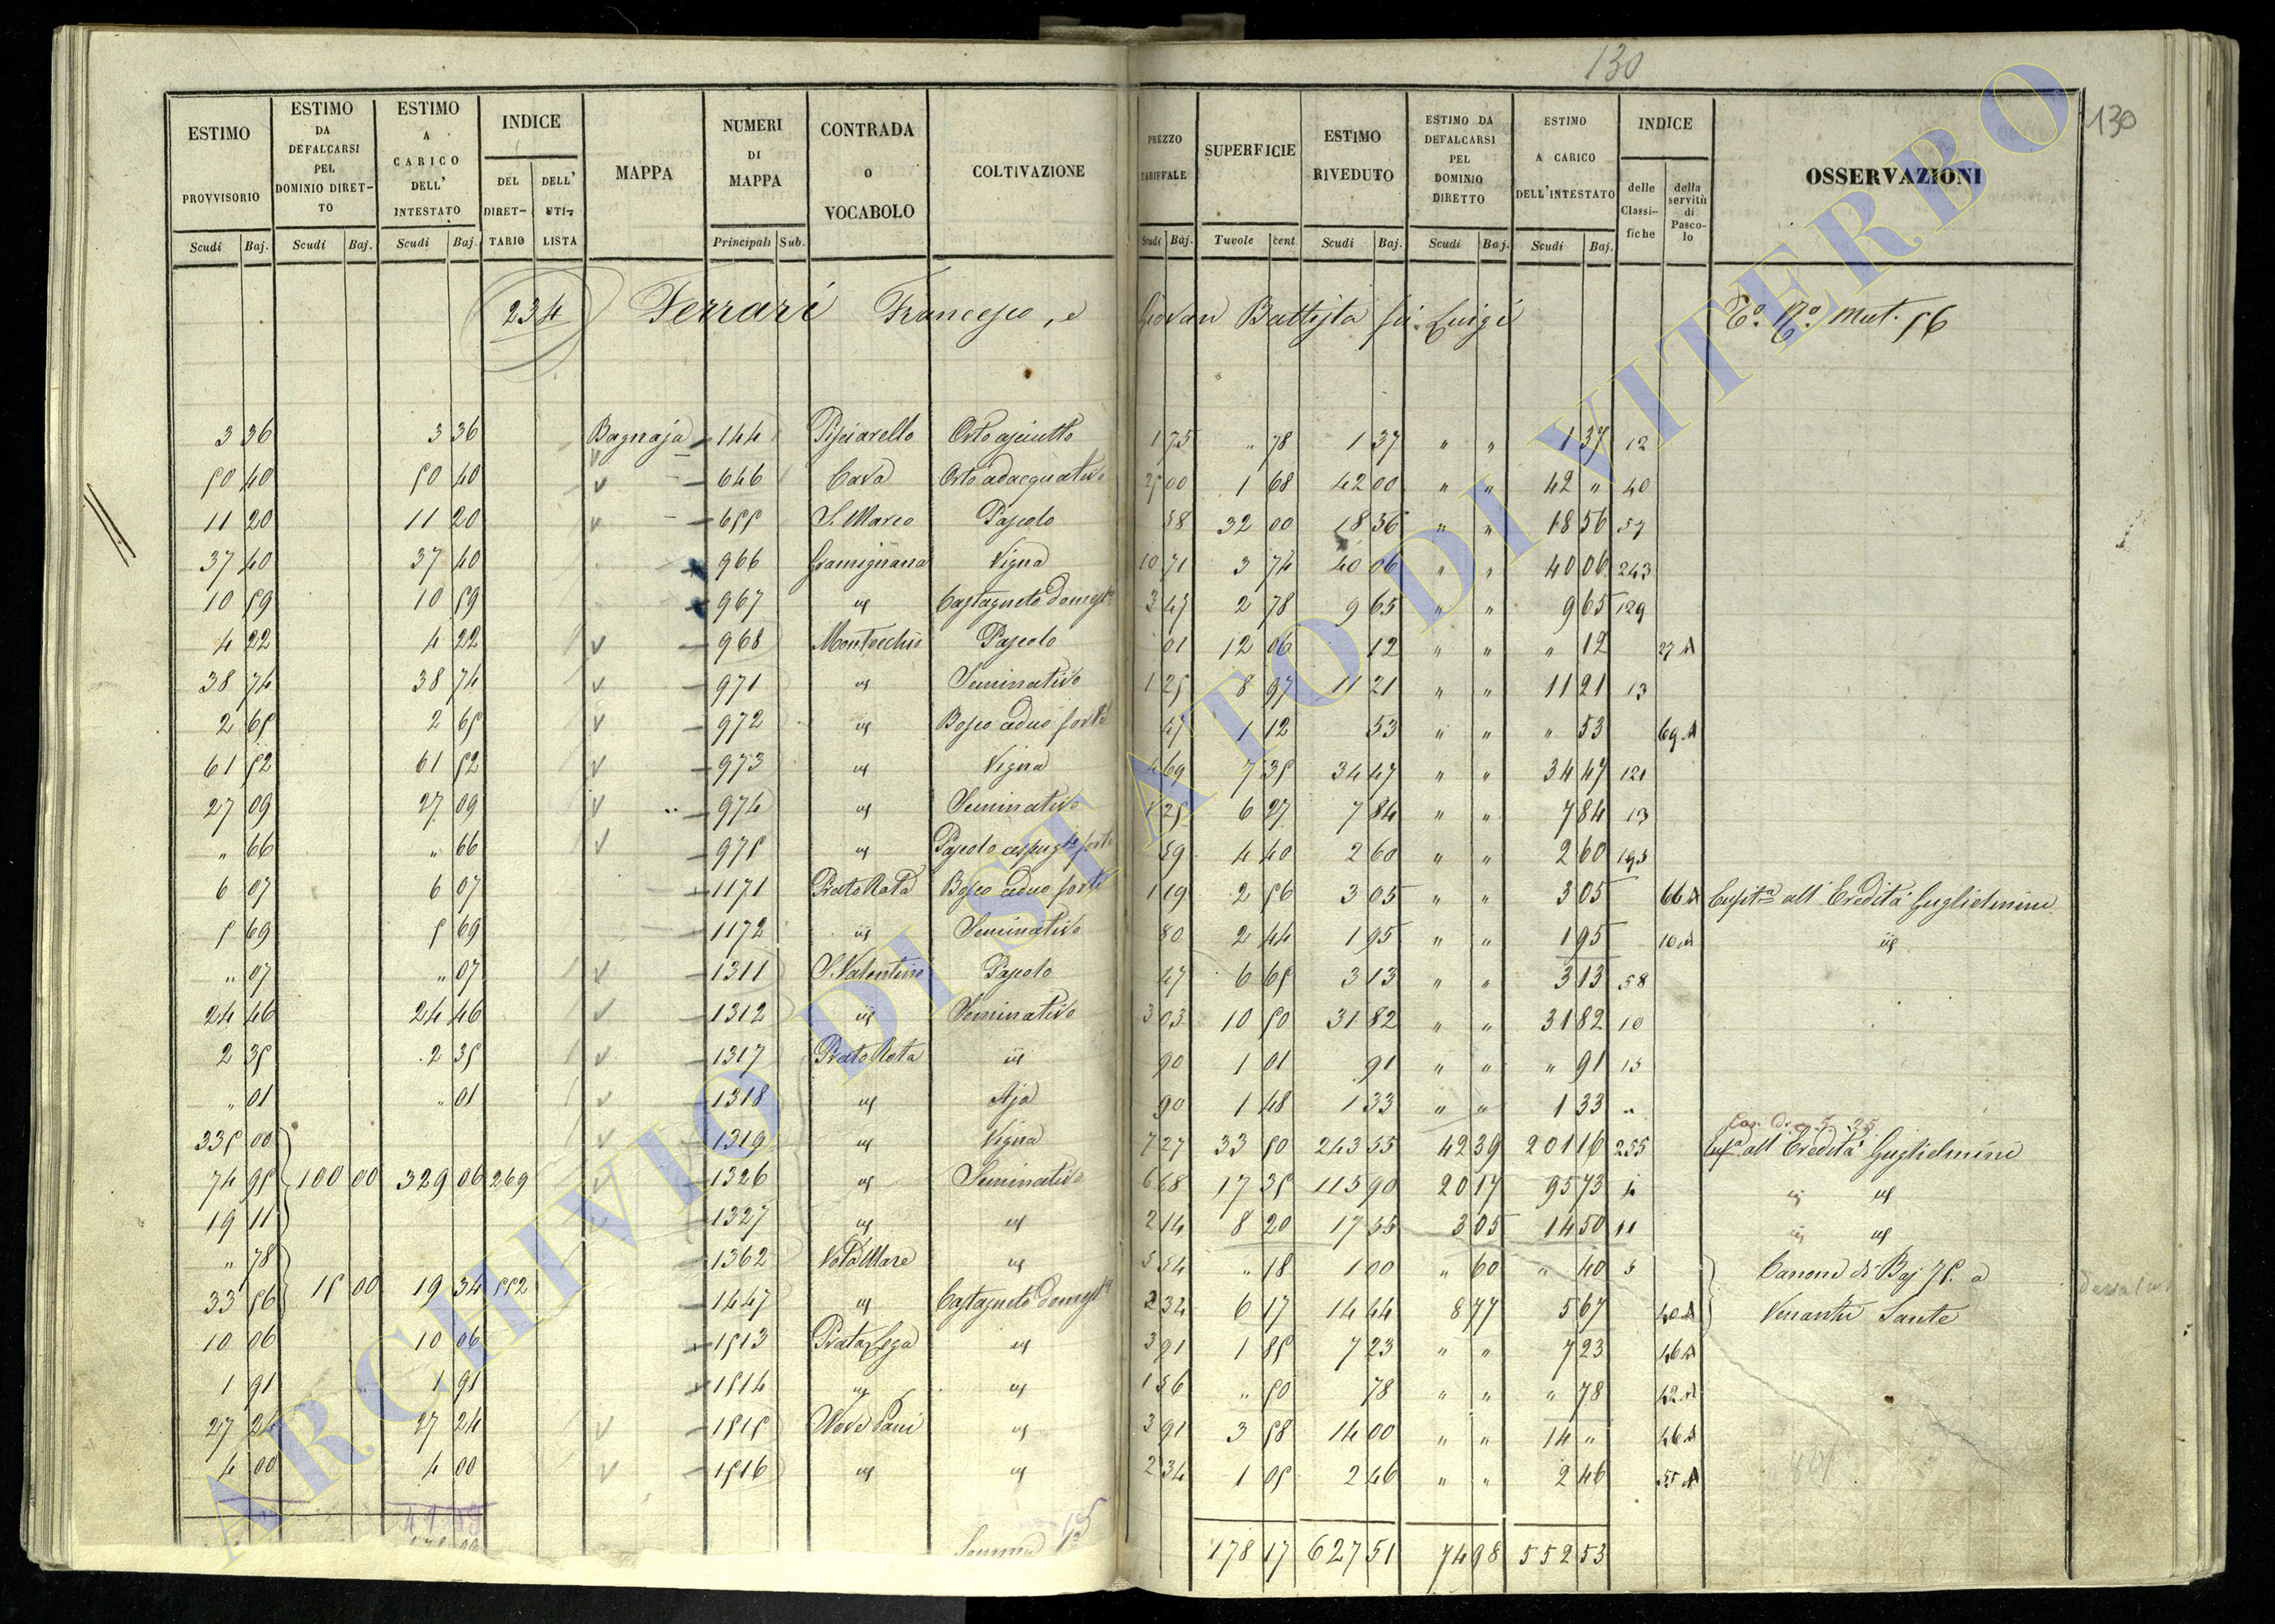 130
130
ESTIMO PROVVISORIO
ESTIMO DA DEFALCARSI PEL DOMINIO DIRET-TO
ESTIMO A CARICO DELL' INTESTATO
INDICE
DEL DIRET-TARIO
DELL' UTI-LISTA
MAPPA
NUMERI DI MAPPA
CONTRADA o VOCABOLO
COLTIVAZIONE
PREZZO TARIFFALE
SUPERFICIE
ESTIMO RIVEDUTO
ESTIMO DA DEFALCARSI PEL DOMINIO DIRETTO
ESTIMO A CARICO DELL'INTESTATO
INDICE
delle Classi-fiche
della servitù di Pasco-lo
OSSERVAZIONI
Scudi Baj. Scudi Baj. Scudi Baj. Principali Sub. Scudi Baj. Tavole cent Scudi Baj. Scudi Baj. Scudi Baj.
234 Ferrari Francesco, e Giovan Battista fu Luigi To. 17o Mut. 56
3 36 3 36 Bagnaja 144 Pisciarello Orto asciutto 1 75 " 78 1 37 " " 1 37 12
50 40 50 40 646 Cava Orto adacquativo 25 00 1 68 42 00 " " 42 " 40
11 20 11 20 655 S. Marco Pascolo 58 32 00 18 56 " " 18 56 57
37 40 37 40 966 Gramignana Vigna 10 71 3 74 40 06 " " 40 06 243
10 59 10 59 967 id Castagneto domesto 3 47 2 78 9 65 " " 9 65 129
4 22 4 22 968 Montecchio Pascolo 01 12 06 12 " " " 12 27 A
38 74 38 74 971 id Seminativo 1 25 8 97 11 21 " " 11 21 13
2 65 2 65 972 id Bosco ceduo forte 47 1 12 53 " " " 53 69 A
61 52 61 52 973 id Vigna 4 69 7 35 34 47 " " 34 47 121
27 09 27 09 974 id Seminativo 1 25 6 27 7 84 " " 7 84 13
" 66 " 66 975 id Pascolo cespugto forte 59 4 40 2 60 " " 2 60 195
6 07 6 07 1171 Prato Rota Bosco ceduo forte 1 19 2 56 3 05 " " 3 05 66 A all' Eredità Guglielmini
5 69 5 69 1172 id Seminativo 80 2 44 1 95 " " 1 95 10 A id
" 07 " 07 1311 S. Valentino Pascolo 47 6 65 3 13 " " 3 13 58
24 46 24 46 1312 id Seminativo 3 03 10 50 31 82 " " 31 82 10
2 35 2 35 1317 Prato Rota id 90 1 01 91 " " " 91 15
" 01 " 01 1318 id Aja 90 1 48 1 33 " " 1 33 "
335 00 1319 id Vigna 7 27 33 50 243 55 42 39 201 16 255 all' Eredità Guglielmini
74 95 100 00 329 06 269 1326 id Seminativo 6 68 17 35 115 90 20 17 95 73 4 id id
19 11 1327 id id 2 14 8 20 17 55 3 05 14 50 11 id id
" 78 1362 id 5 54 " 18 1 00 " 60 " 40 5 Canone di Baj 75. a
33 56 15 00 19 34 552 1447 id Castagneto domesto 2 34 6 17 14 44 8 77 5 67 40 A Venanti Sante
10 06 10 06 1513 Prata Lega id 3 91 1 85 7 23 " " 7 23 46 A
1 91 1 91 1514 id id 1 56 " 50 78 " " " 78 42 A
27 24 27 24 1515 id 3 91 3 58 14 00 " " 14 " 46 A
4 00 4 00 1516 id id 2 34 1 05 2 46 " " 2 46 55 A
Somma 178 17 627 51 74 98 552 53
ARCHIVIO DI STATO DI VITERBO